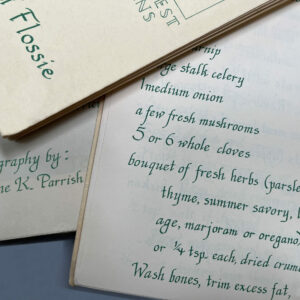 Flossie
graphy by:
K. Parrish
stalk celery
1 medium onion
a few fresh mushrooms
5 or 6 whole cloves
bouquet of fresh herbs (parsle
thyme, summer savory,
age, marjoram or oregano
or ¼ tsp. each, dried crum
Wash bones, trim excess fat,